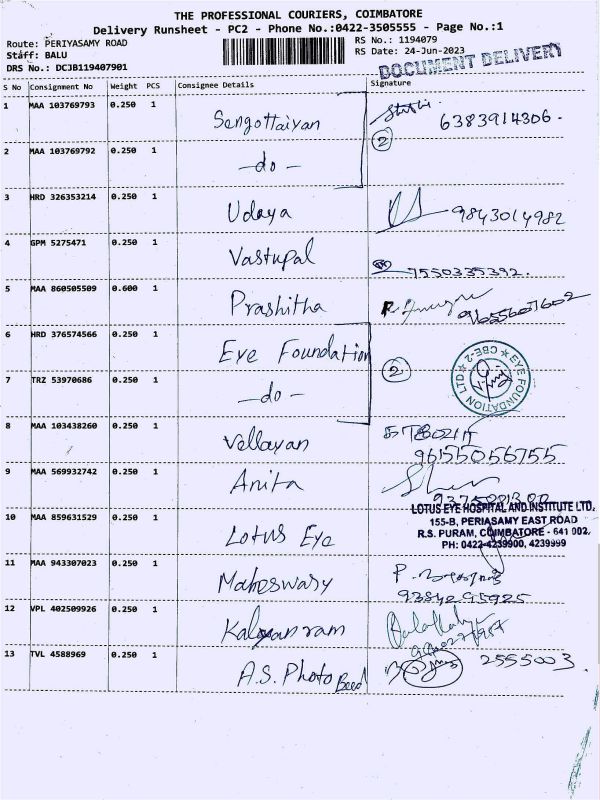 THE PROFESSIONAL COURIERS, COIMBATORE
Delivery Runsheet - PC2 - Phone No.:0422-3505555 - Page No.:1
Route: PERIYASAMY ROAD RS No.: 1194079
Staff: BALU RS Date: 24-Jun-2023
DRS No.: DCJB119407901 DOCUMENT DELIVERY
S No Consignment No Weight PCS Consignee Details Signature
1 MAA 103769793 0.250 1 Sengottaiyan 6383914306.
2
2 MAA 103769792 0.250 1 -do-
3 HRD 326353214 0.250 1 Udaya 9843014982
4 GPM 5275471 0.250 1 Vastupal 7550335392.
5 MAA 860505509 0.600 1 Prashitha
6 HRD 376574566 0.250 1 Eye Foundation
2 EYE FOUNDATION LTD CBE-2
7 TRZ 53970686 0.250 1 -do-
8 MAA 103438260 0.250 1 Vellayan
9 MAA 569932742 0.250 1 Anita
LOTUS EYE HOSPITAL AND INSTITUTE LTD.
155-B, PERIASAMY EAST ROAD
R.S. PURAM, COIMBATORE - 641 002.
PH: 0422-4239900, 4239999
10 MAA 859631529 0.250 1 Lotus Eye
11 MAA 943307023 0.250 1 Maheswary
9384295925
12 VPL 402509926 0.250 1 Kalyanram
13 TVL 4588969 0.250 1 A.S. Photo 2555003.